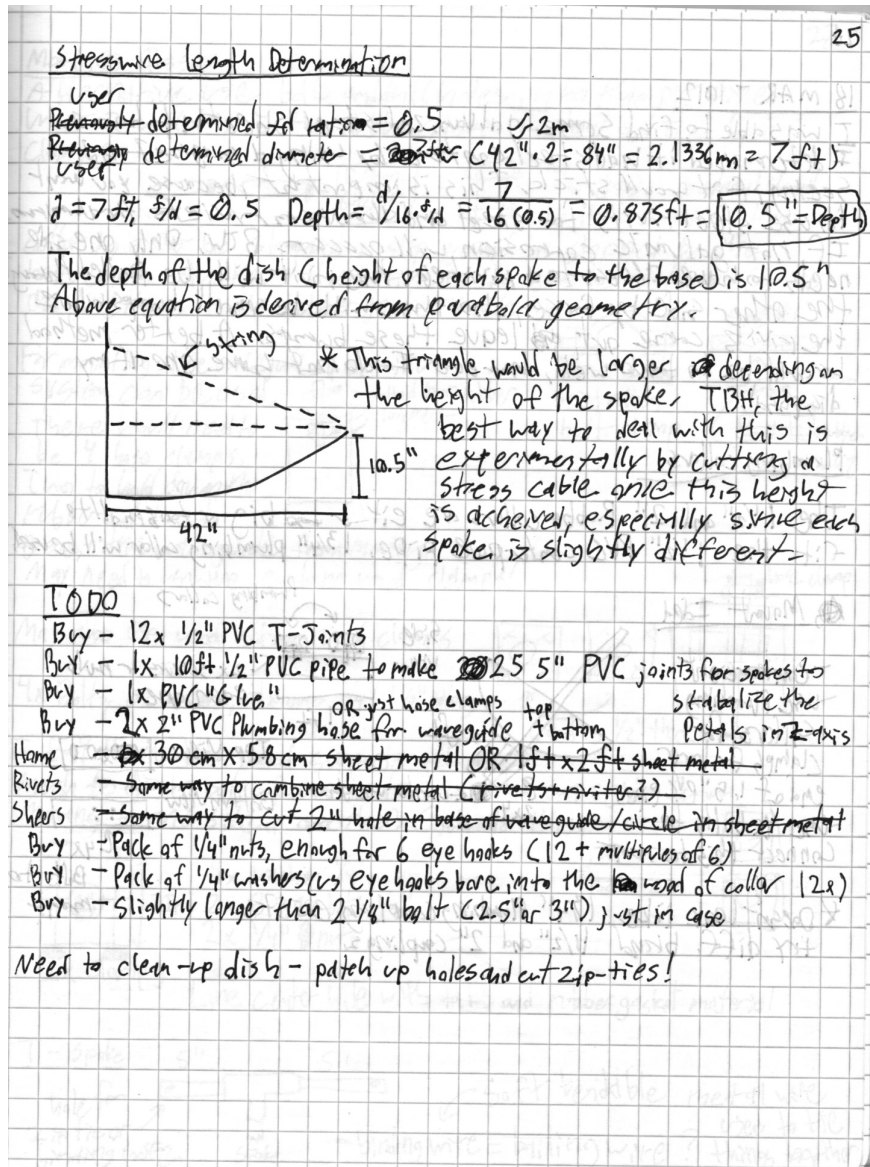 25
Stresswire Length Determination
User
Previously determined f/d ratio = 0.5 ≈ 2m
Previously determined diameter = (42"·2 = 84" = 2.1336m = 7ft)
User
d = 7ft, f/d = 0.5 Depth = d/16·f/d = 7/16(0.5) = 0.875ft = 10.5" = Depth
The depth of the dish (height of each spoke to the base) is 10.5"
Above equation is derived from parabola geometry.
string
* This triangle would be larger depending on
the height of the spoke. TBH, the
best way to deal with this is
10.5" experimentally by cutting a
stress cable once this height
is acheived, especially since each
42" spoke is slightly different.
TODO
Buy - 12x 1/2" PVC T-Joints
Buy - 1x 10ft 1/2" PVC pipe to make 25 5" PVC joints for spokes to
stabalize the
Petals in Z-axis
Buy - 1x PVC "Glue"
OR just hose clamps top
Buy - 2x 2" PVC Plumbing hose for waveguide + bottom
Home - 30 cm x 58 cm sheet metal OR 1ft x 2ft sheet metal
Rivets - Some way to combine sheet metal (rivets + riviter?)
Sheers - Some way to cut 2" hole in base of waveguide/circle in sheet metal
Buy - Pack of 1/4" nuts, enough for 6 eye hooks (12 + multipules of 6)
Buy - Pack of 1/4" washers (vs eye hooks bore into the wood of collar 12x)
Buy - Slightly longer than 2 1/8" bolt (2.5" or 3") just in case
Need to clean-up dish - patch up holes and cut zip-ties!